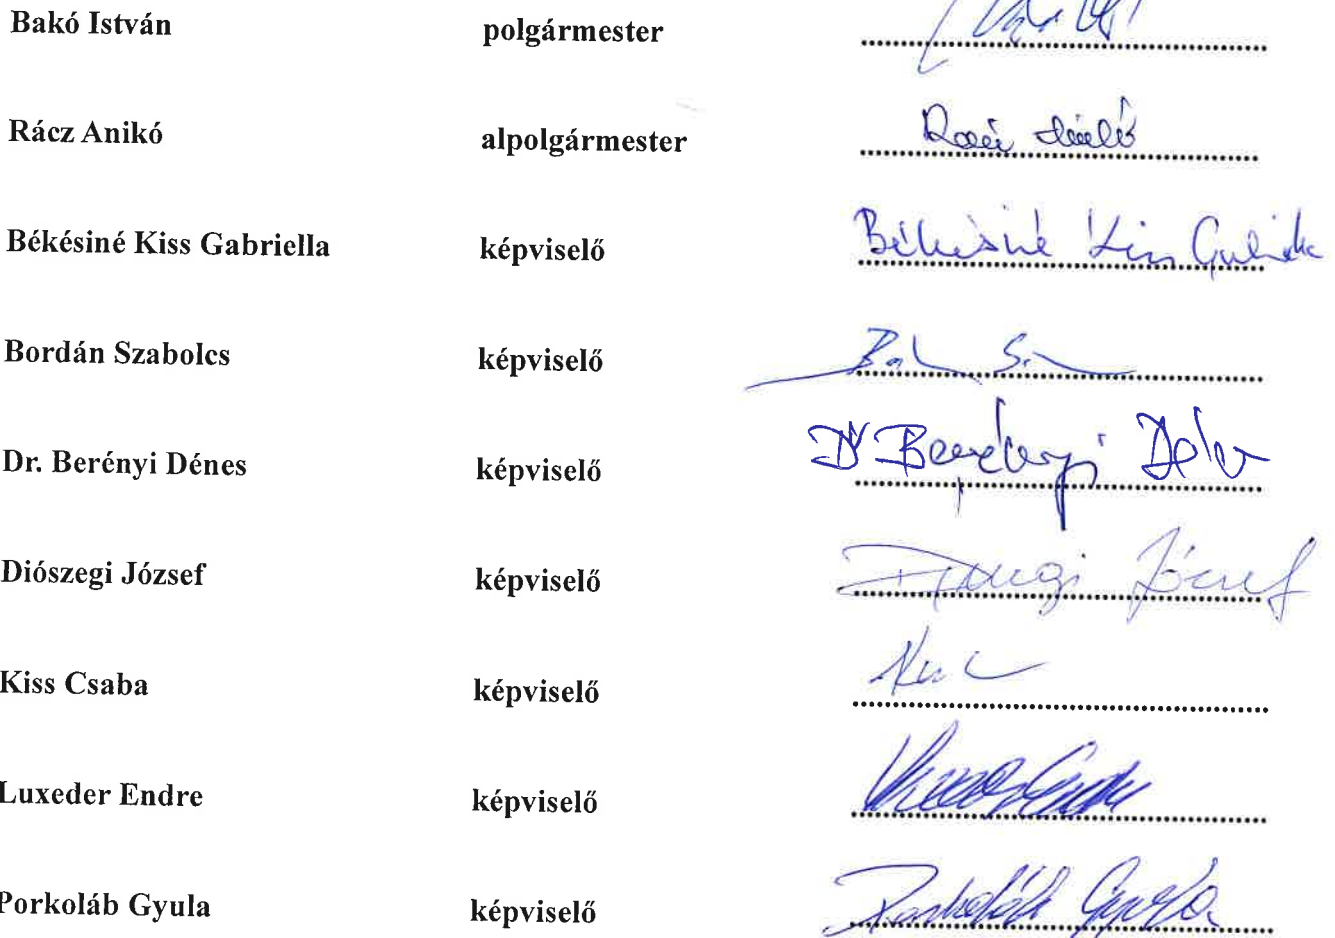 Bakó István polgármester
Rácz Anikó alpolgármester Rácz Anikó
Békésiné Kiss Gabriella képviselő Békésiné Kiss Gabriella
Bordán Szabolcs képviselő
Dr. Berényi Dénes képviselő Dr Berényi Dénes
Diószegi József képviselő Diószegi József
Kiss Csaba képviselő
Luxeder Endre képviselő
Porkoláb Gyula képviselő Porkoláb Gyula